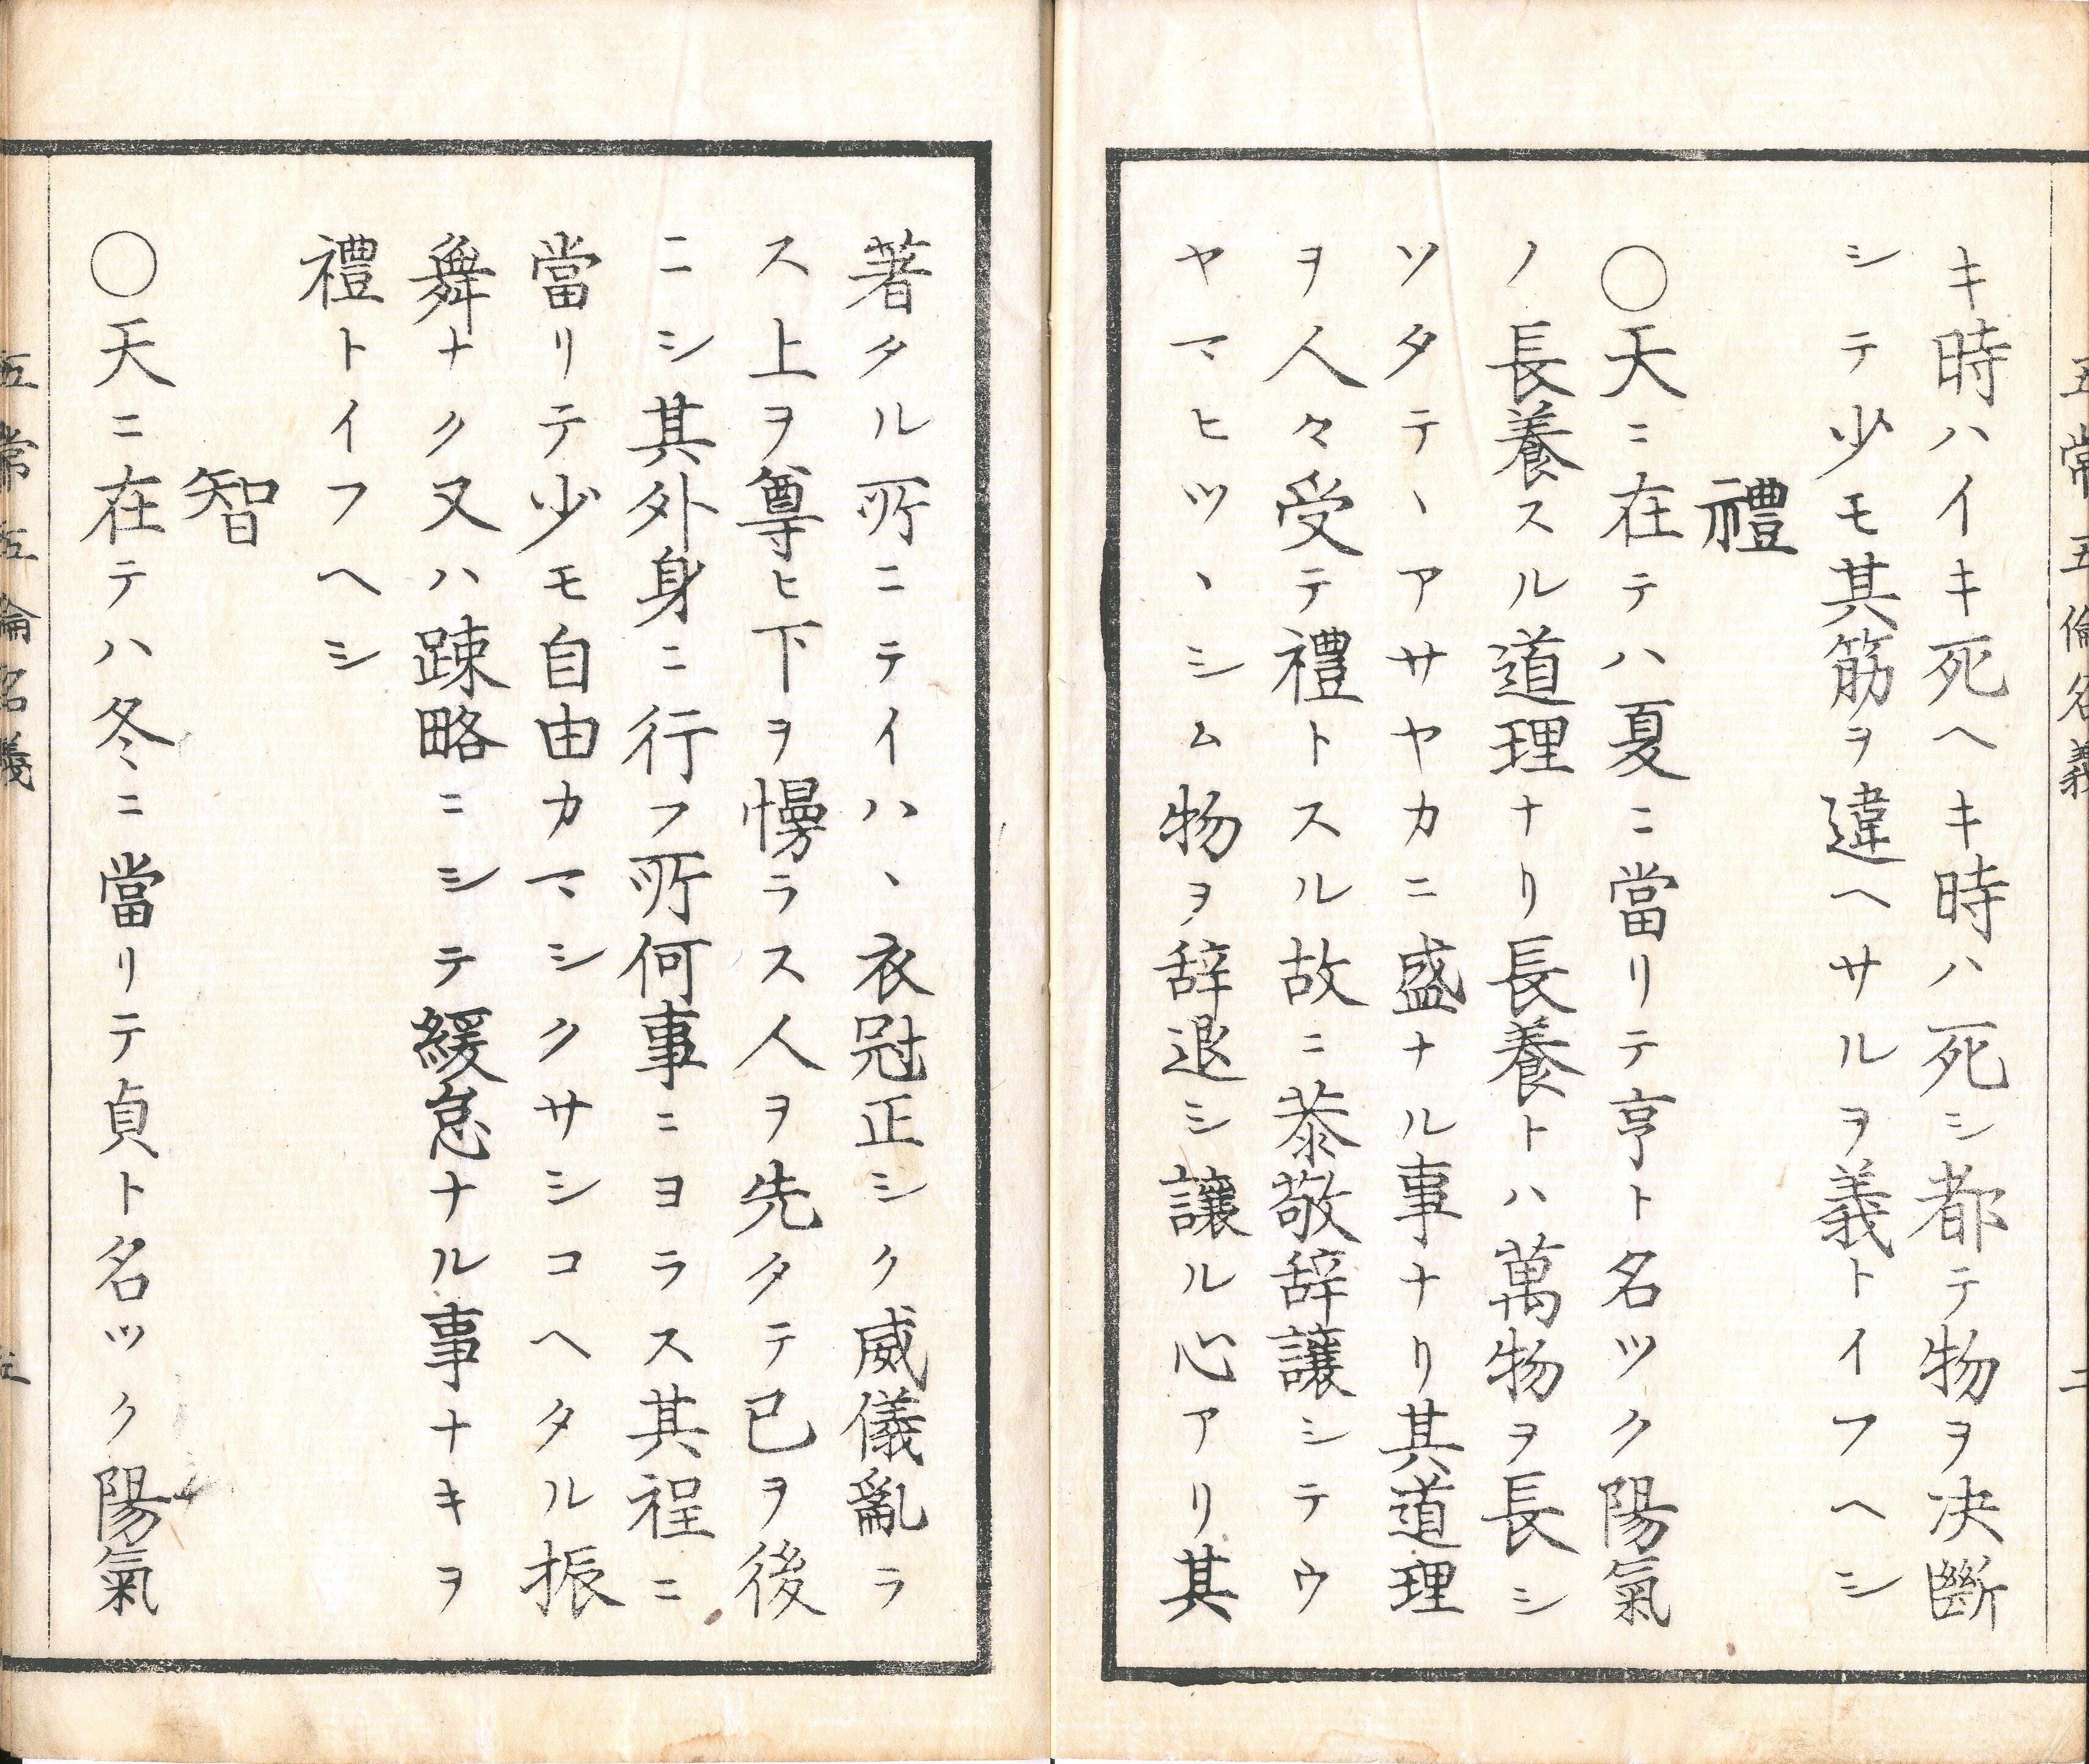 五常五倫名義 二
キ時ハイキ死ヘキ時ハ死シ都テ物ヲ决斷
シテ少モ其筋ヲ違ヘサルヲ義トイフヘシ
禮
〇天ニ在テハ夏ニ當リテ亨ト名ツク陽氣
ノ長養スル道理ナリ長養トハ萬物ヲ長シ
ソタテヽアサヤカニ盛ナル事ナリ其道理
ヲ人々受テ禮トスル故ニ恭敬辞讓シテウ
ヤマヒツヽシム物ヲ辞退シ讓ル心アリ其
著タル所ニテイハヽ衣冠正シク威儀亂ラ
ス上ヲ尊ヒ下ヲ慢ラス人ヲ先タテ已ヲ後
ニシ其外身ニ行フ所何事ニヨラス其程ニ
當リテ少モ自由カマシクサシコヘタル振
舞ナク又ハ踈略ニシテ緩怠ナル事ナキヲ
禮トイフヘシ
智
〇天ニ在テハ冬ニ當リテ貞ト名ツク陽氣
五常五倫名義